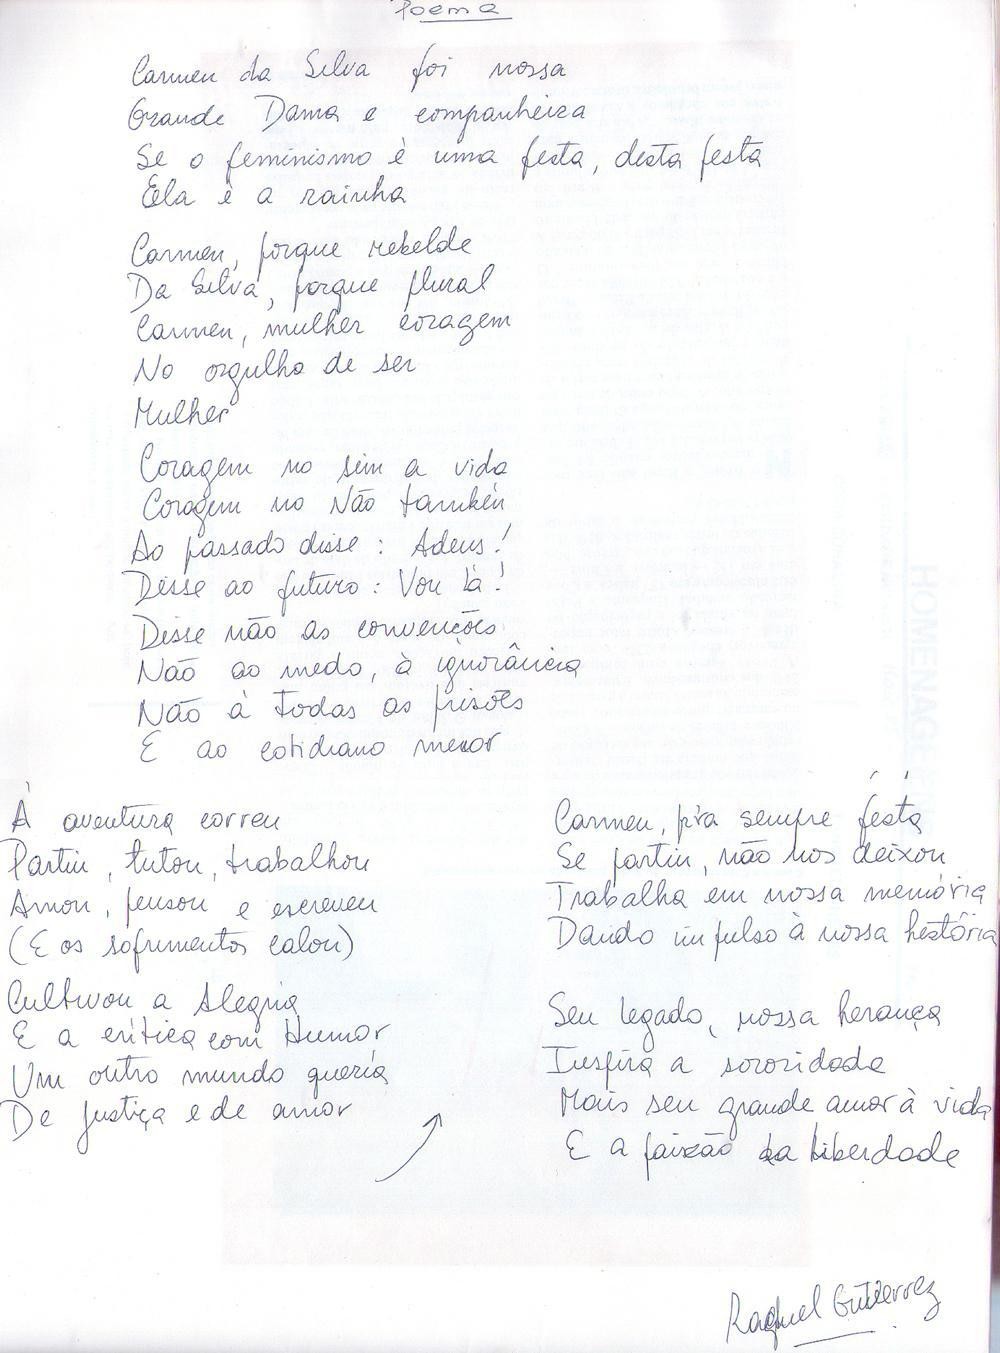 Poema
Carmen da Silva foi nossa
Grande Dama e companheira
Se o feminismo é uma festa, desta festa
Ela é a rainha
Carmen, porque rebelde
Da Silva, porque plural
Carmen, mulher coragem
No orgulho de ser
Mulher
Coragem no sim a vida
Coragem no Não também
Ao passado disse: Adeus!
Disse ao futuro: Vou lá!
Disse não as convenções
Não ao medo, à ignorância
Não à todas as prisões
E ao cotidiano menor
À aventura correu
Partiu, lutou, trabalhou
Amou, pensou e escreveu
(E os sofrimentos calou)
Cultivou a Alegria
E a crítica com Humor
Um outro mundo queria
De justiça e de amor
Carmen, pra sempre festa
Se partiu, não nos deixou
Trabalha em nossa memória
Dando impulso à nossa história
Seu legado, nossa herança
Inspira a sororidade
Mais seu grande amor à vida
E a paixão da liberdade
Raquel Gutierrez
HOMENAGE